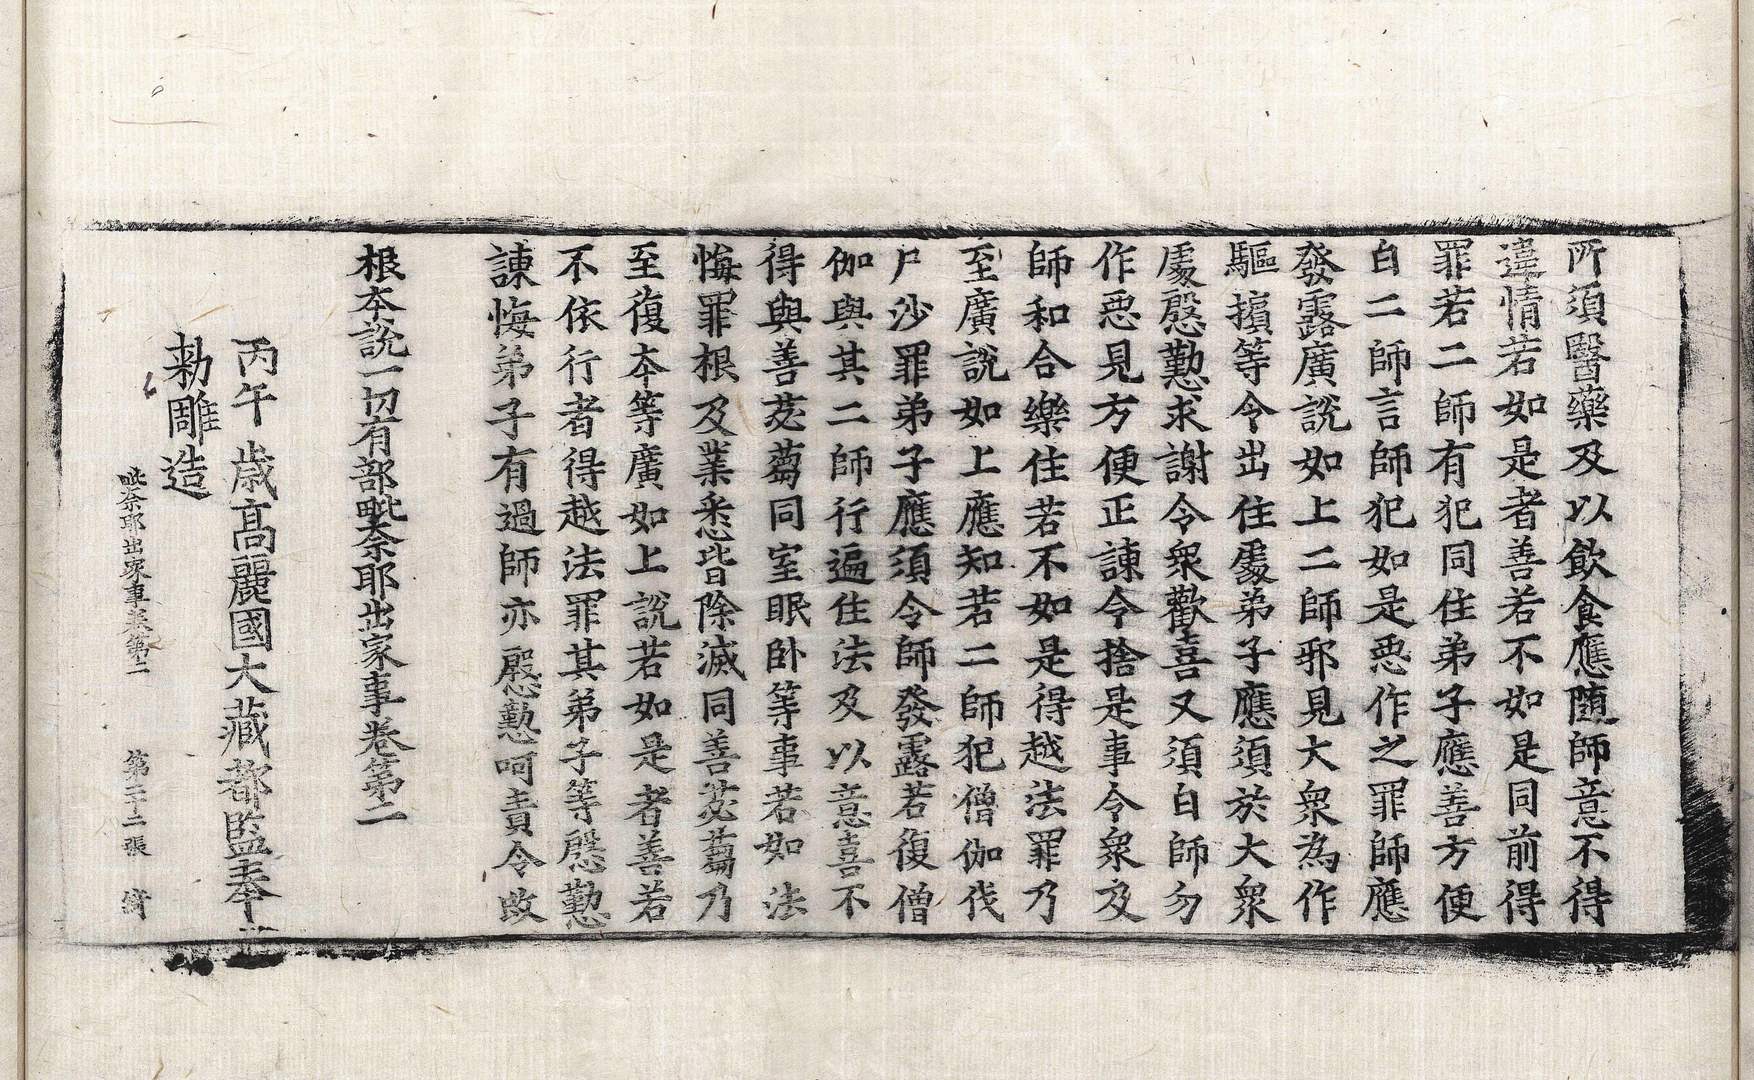 所須醫藥及以飲食應隨師意不得
違情若如是者善若不如是同前得
罪若二師有犯同住弟子應善方便
白二師言師犯如是惡作之罪師應
發露廣說如上二師邪見大衆為作
驅擯等令出住處弟子應須於大衆
處慇懃求謝令衆歡喜又須白師勿
作惡見方便正諫令捨是事令衆及
師和合樂住若不如是得越法罪乃
至廣說如上應知若二師犯僧伽伐
尸沙罪弟子應須令師發露若復僧
伽與其二師行遍住法及以意喜不
得與善苾蒭同室眠卧等事若如法
悔罪根及業悉皆除滅同善苾蒭乃
至復本等廣如上說若如是者善若
不依行者得越法罪其弟子等慇懃
諫悔弟子有過師亦慇懃呵責令改
根本說一切有部毗奈耶出家事卷第二
丙午歲高麗國大藏都監奉
勅雕造
毗奈耶出家事卷第二 第二十二張